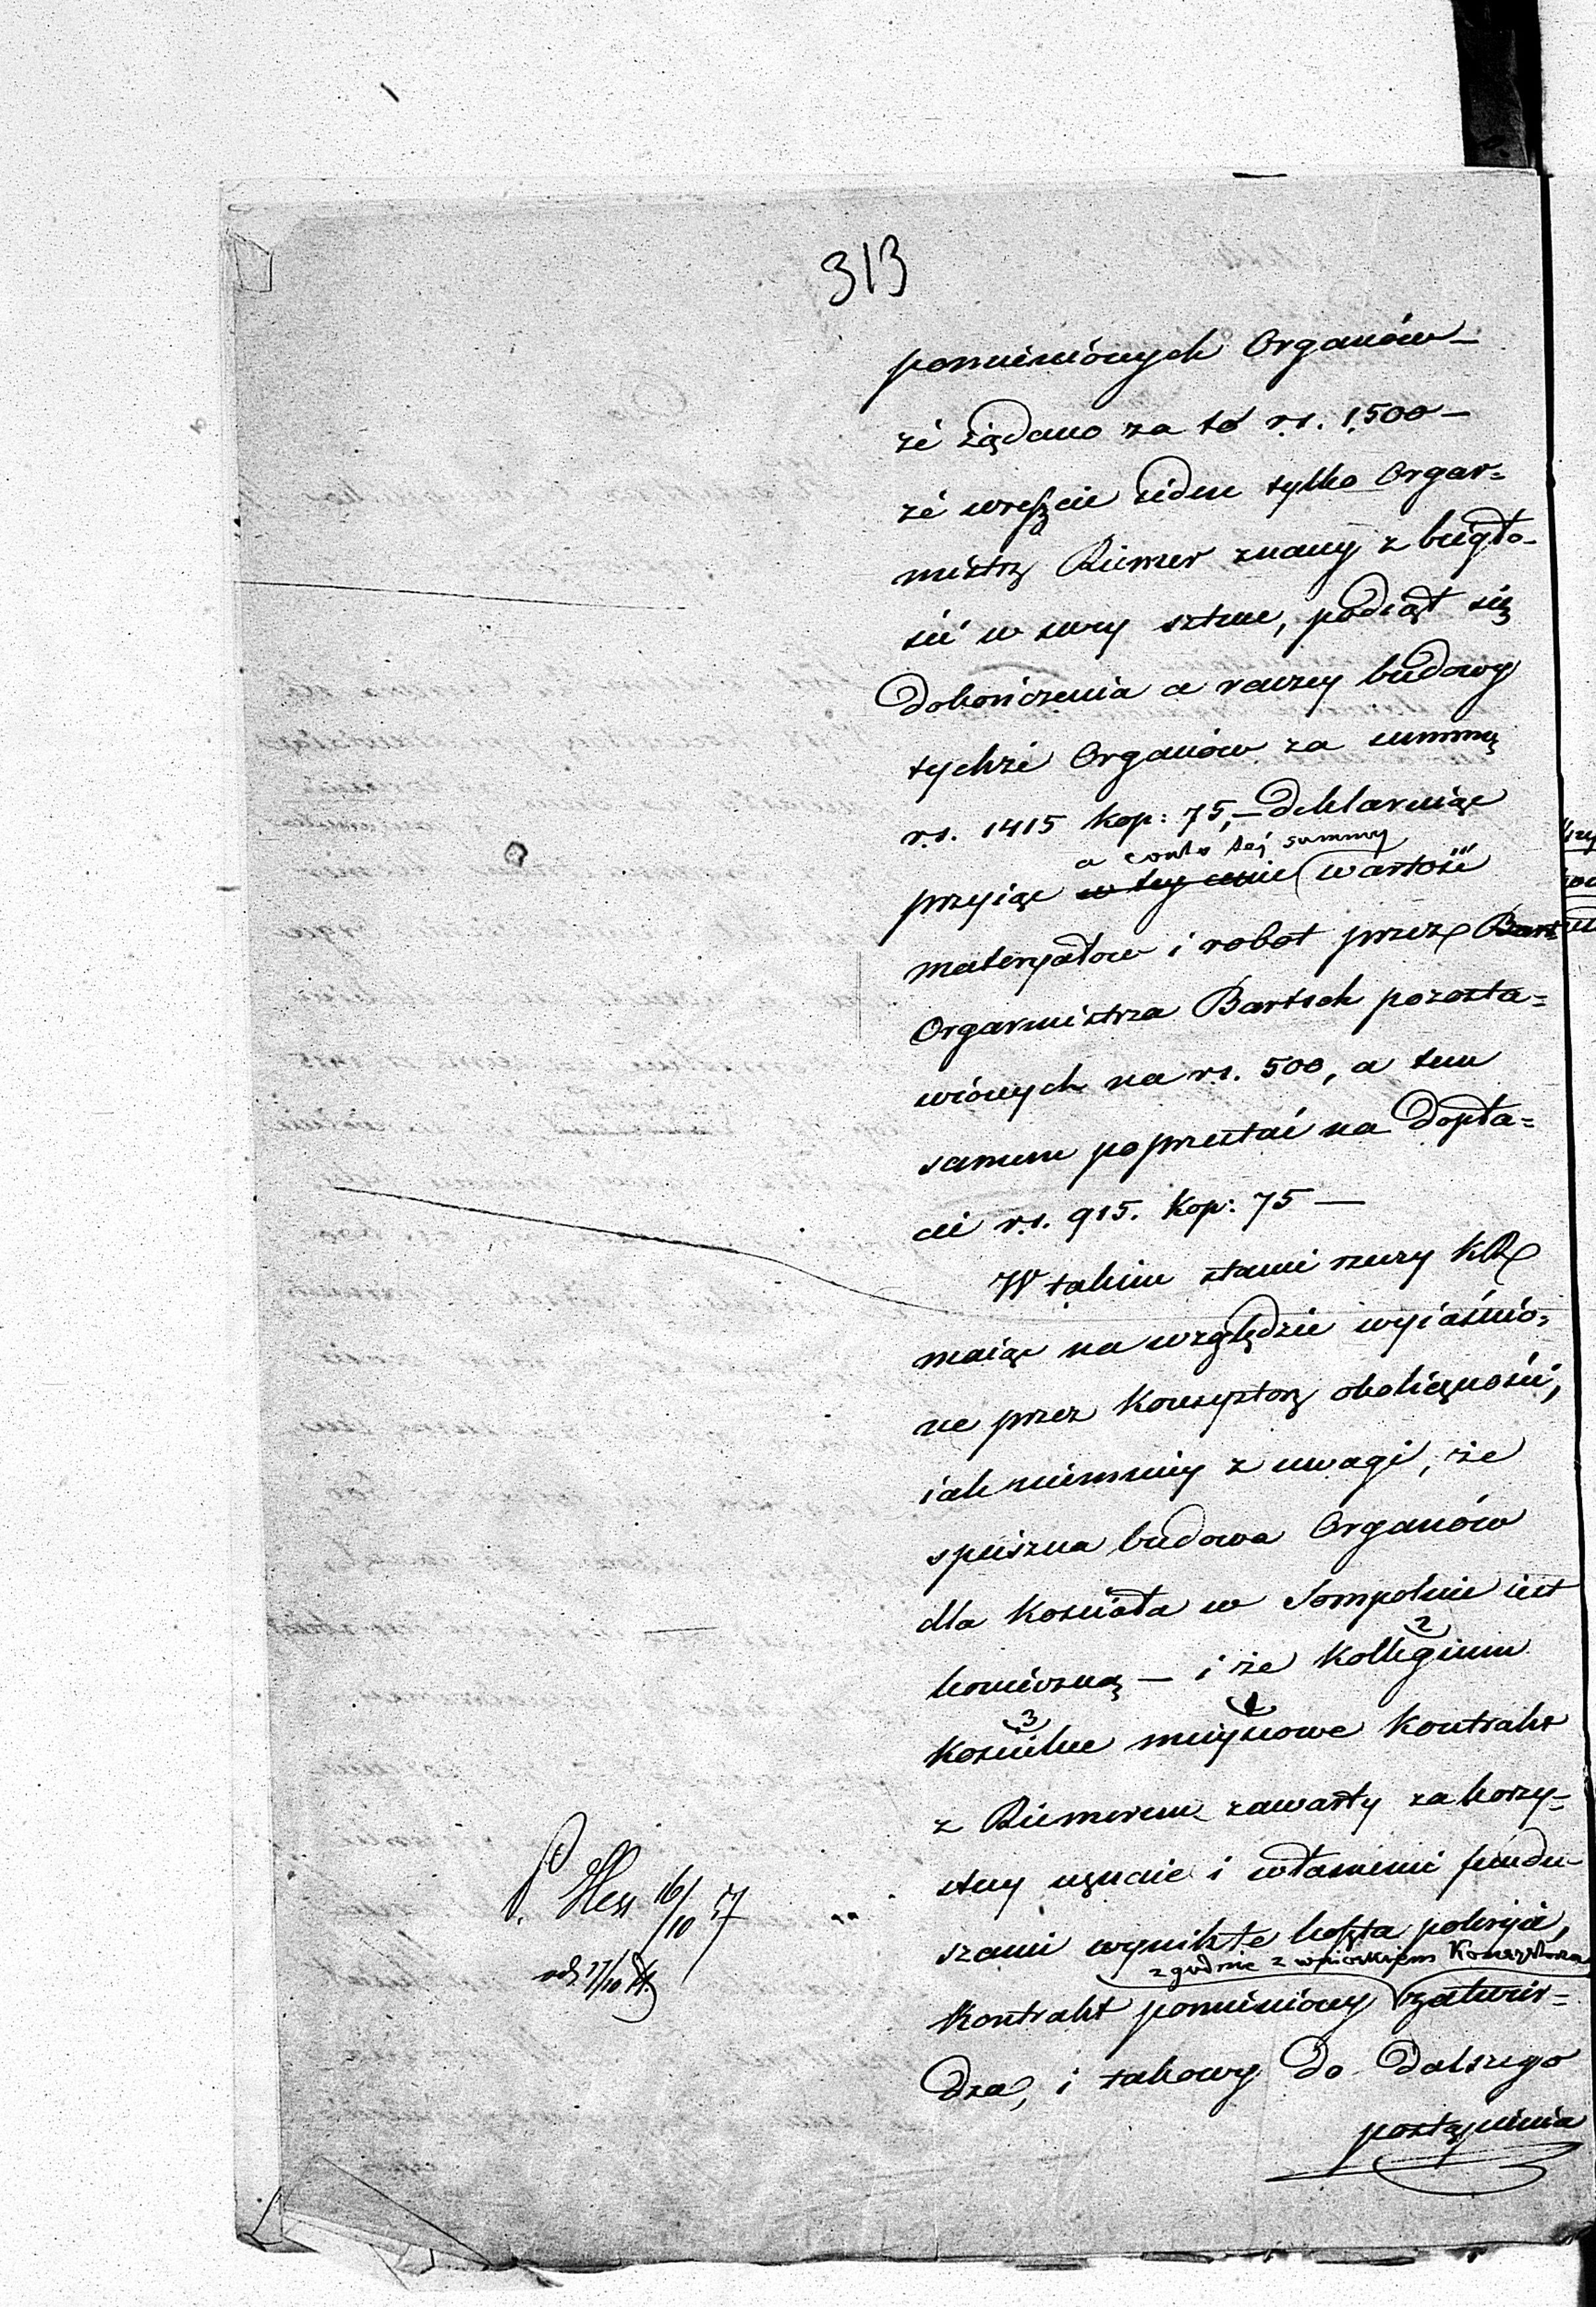 313
pomienionych Organów —
że żądano za to r.s. 1,500 —
że wreszcie ieden tylko Orgar=
mistrz Riemer znany z biegło-
ści w swey sztuce, podiął się
dokończenia a raczey budowy
tychże Organów za summę
r.s. 1415 kop: 75, — deklaruiąc
a conto téj summy
przyiąc w tey cenie wartość
materyałow i robot przez Bart
Orgarmistrza Bartsch pozosta=
wionych na rs. 500, a tem
samem poprzestać na dopła=
cie r.s. 915. kop: 75 —
W takim stanie rzeczy KR
maiąc na względzie wyiaśnio=
ne przez Konsystorz okoliczności,
iak niemniey z uwagi, że
spieszna budowa Organów
dla kościoła w Sompolnie iest
konieczną — i że Kollegium
2
3 1
Kościelne mieyscowe kontrakt
z Riemerem zawarty za korzy=
stny uznaie i własnemi fundu
szami wynikłe koszta pokryie,
zgodnie z wnioskiem Konsystorza
kontrakt pomieniony zatwier=
dza, i takowy do dalszego
postąpienia
Hess 16/10 57
17/10